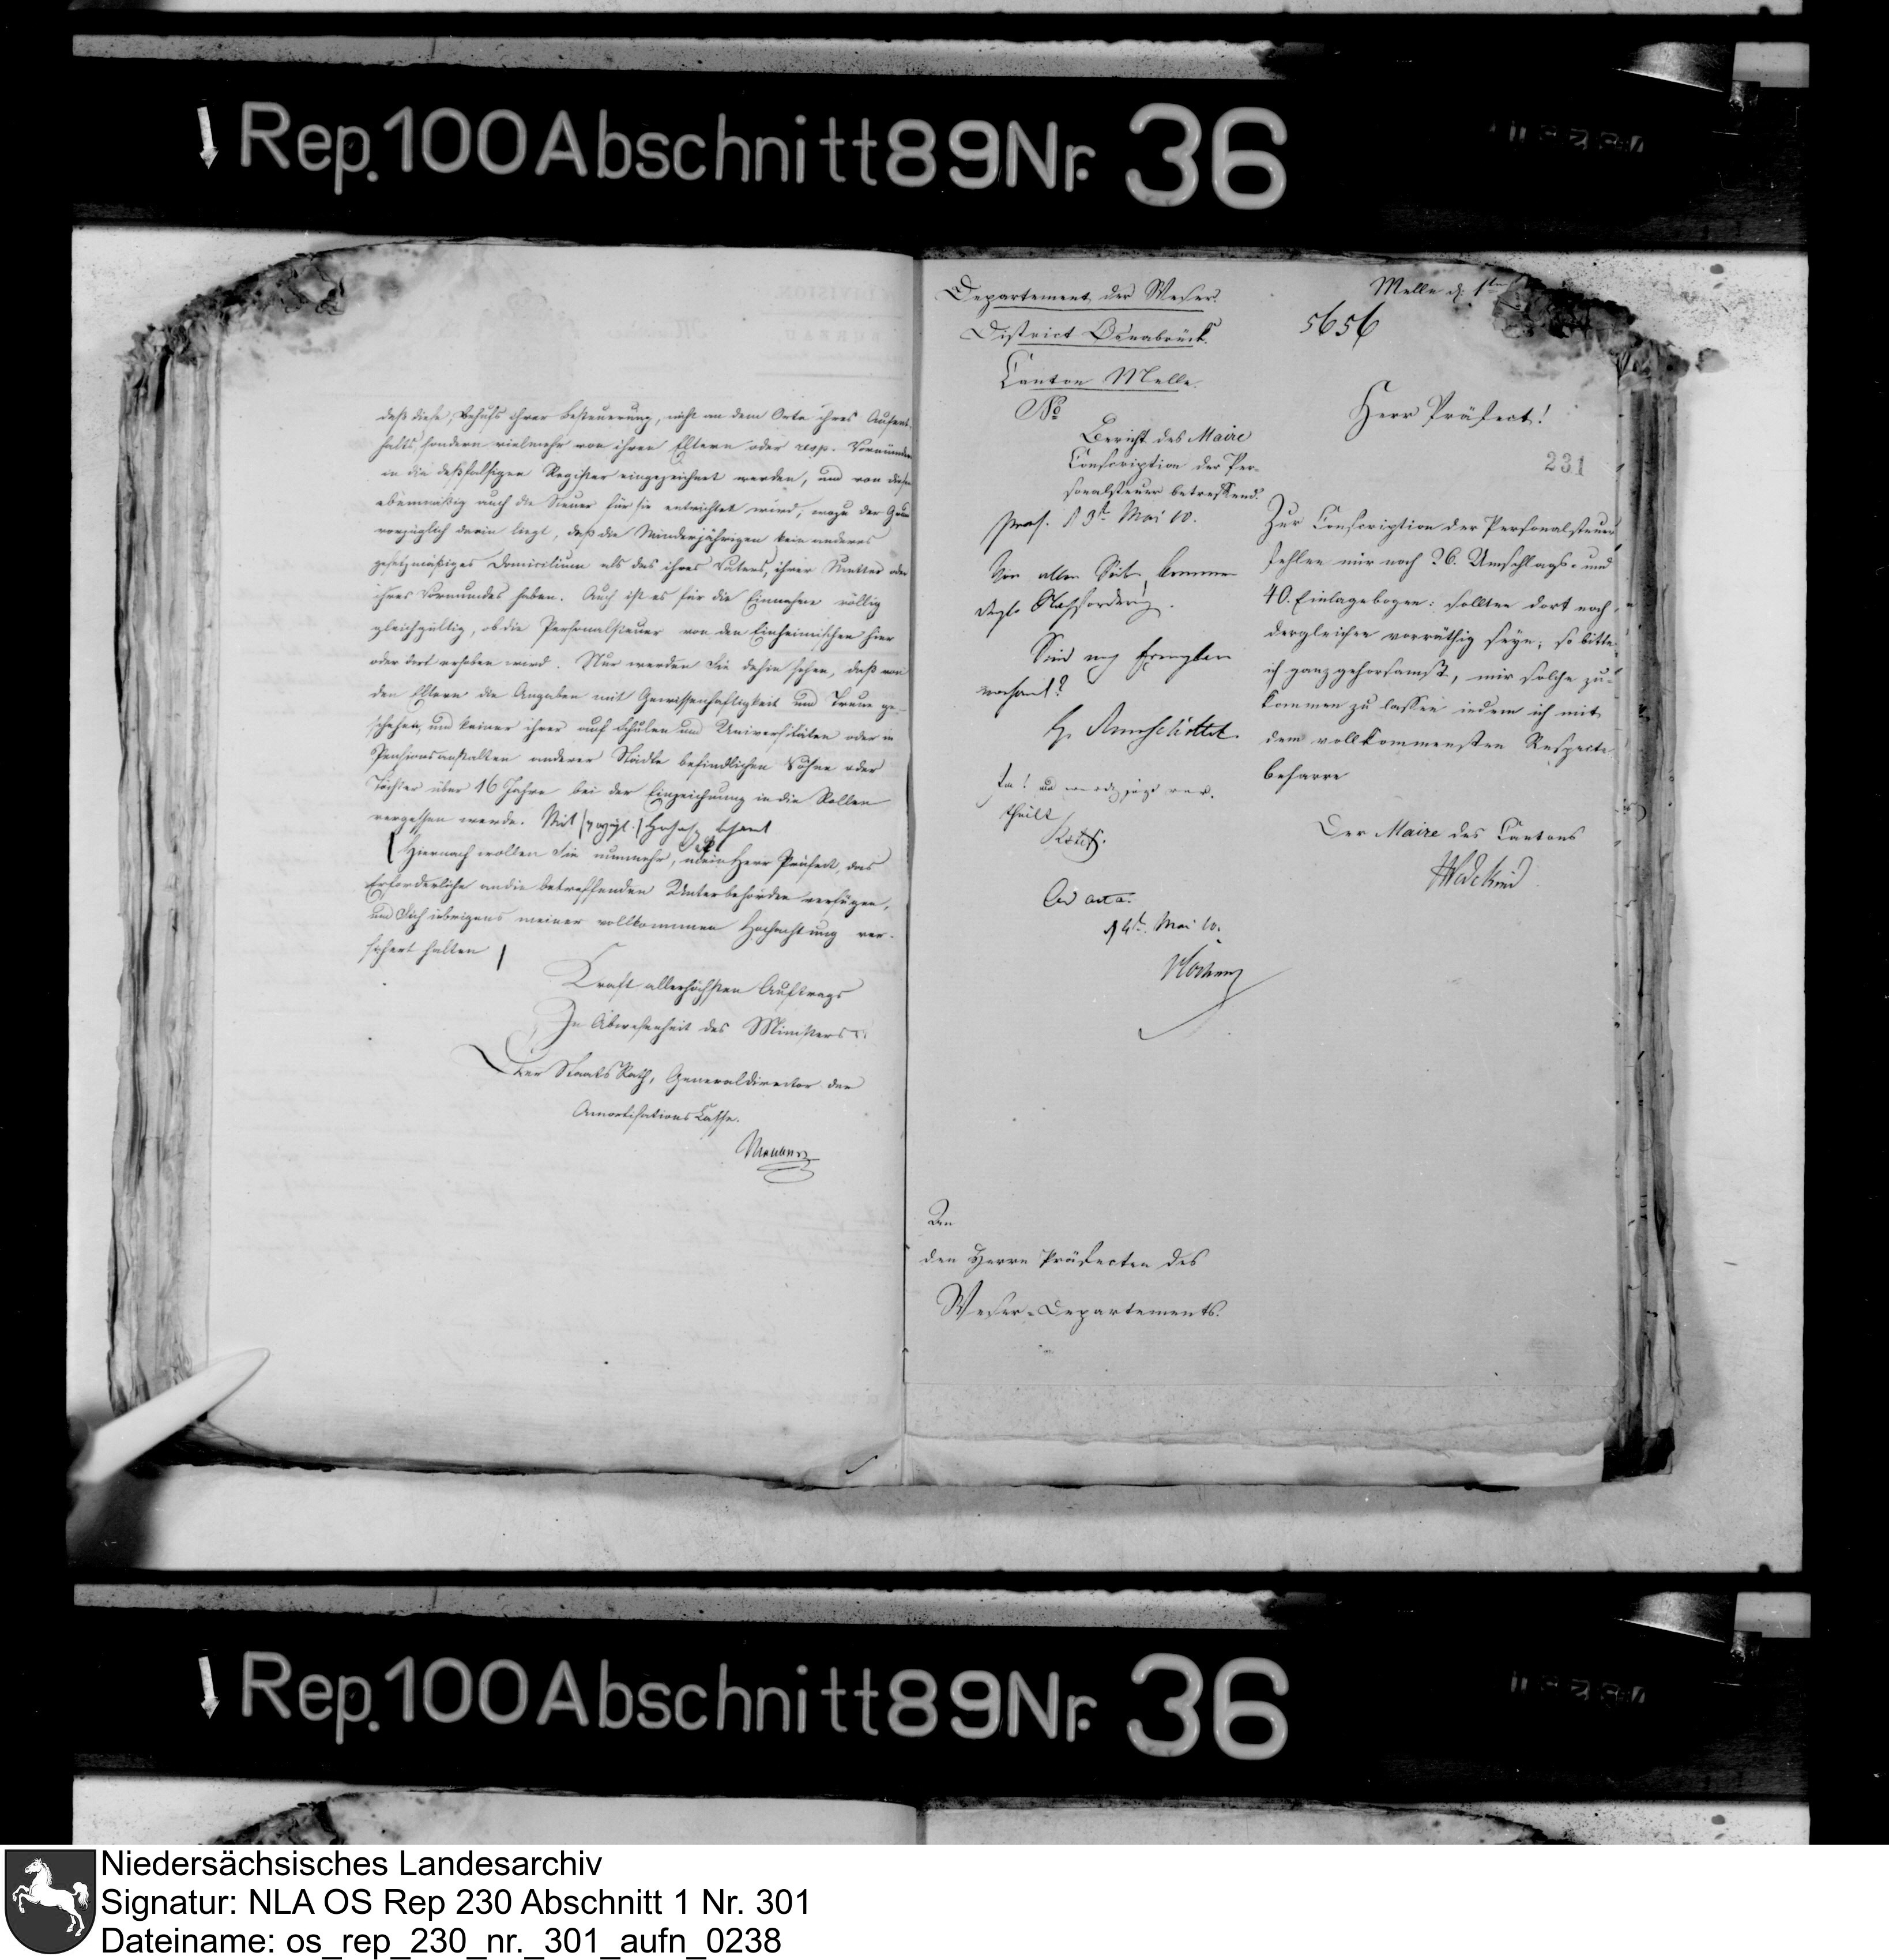 Rep. 100 Abschnitt 89 Nr. 36
daß diese, Behufs ihrer Besteuerung, nicht an dem Orte ihres Aufent-
halts, sondern vielmehr von ihren Eltern oder resp. Vormünder
in die deßfalsigen Register eingezeichnet werden, und von diesen
ebenmäßig auch die Steuer für sie entrichtet wird, wozu der Grund
vorzüglich darin liegt, daß die Minderjährigen kein anderes
gesetzmäßiges Domicilium als das ihres Vaters, ihrer Mutter oder
ihres Vormundes haben. Auch ist es für die Einnahme völlig
gleichgültig, ob die Personalsteuer von den Einheimischen hier
oder dort erhoben wird. Nur werden Sie dahin sehen, daß von
den Eltern die Angaben mit Gewissenhaftigkeit und Treue ge-
schehen, und keiner ihrer auf Schulen und Universitäten oder in
Pensionsanstalten anderer Städte befindlichen Söhne oder
Töchter über 16 Jahre bei der Einzeichnung in die Rollen
vergessen werde. Mit
Hiernach wollen Sie nunmehr, mein Herr Präfect, das
Erforderliche an die betreffenden Unterbehörden verfügen,
und Sich übrigens meiner vollkommnen Hochachtung ver-
sichert halten
Kraft allerhöchsten Auftrags
In Abwesenheit des Ministers
Der Staats Rath, Generaldirector der
Amortisations Casse.
Departement der Weser.
District Osnabrück.
Canton Melle.
No
Bericht des Maire
Conscription der Per-
sonalsteuer betreffend.
praes. d 3t Mai 10.
Von allen Seiten kommen
dergl. Nachforderung.
Sind noch Exemplare
vorhanden?
Ad acta.
d 4t. Mai 10.
Melle d. 1ten
5656
Herr Präfect!
231
Zur Conscription der Personalsteuer
fehlen mir noch 26. Umschlags- und
40. Einlagebogen: sollten dort noch
dergleichen vorräthig seyn; so bitte
ich ganz gehorsamst, mir solche zu-
kommen zu lassen indem ich mit
dem vollkommensten Respecte
beharre
Der Maire des Cantons
Wedekind
An
den Herrn Präfecten des
Weser-Departements.
Rep. 100 Abschnitt 89 Nr. 36
Niedersächsisches Landesarchiv
Signatur: NLA OS Rep 230 Abschnitt 1 Nr. 301
Dateiname: os_rep_230_nr._301_aufn_0238